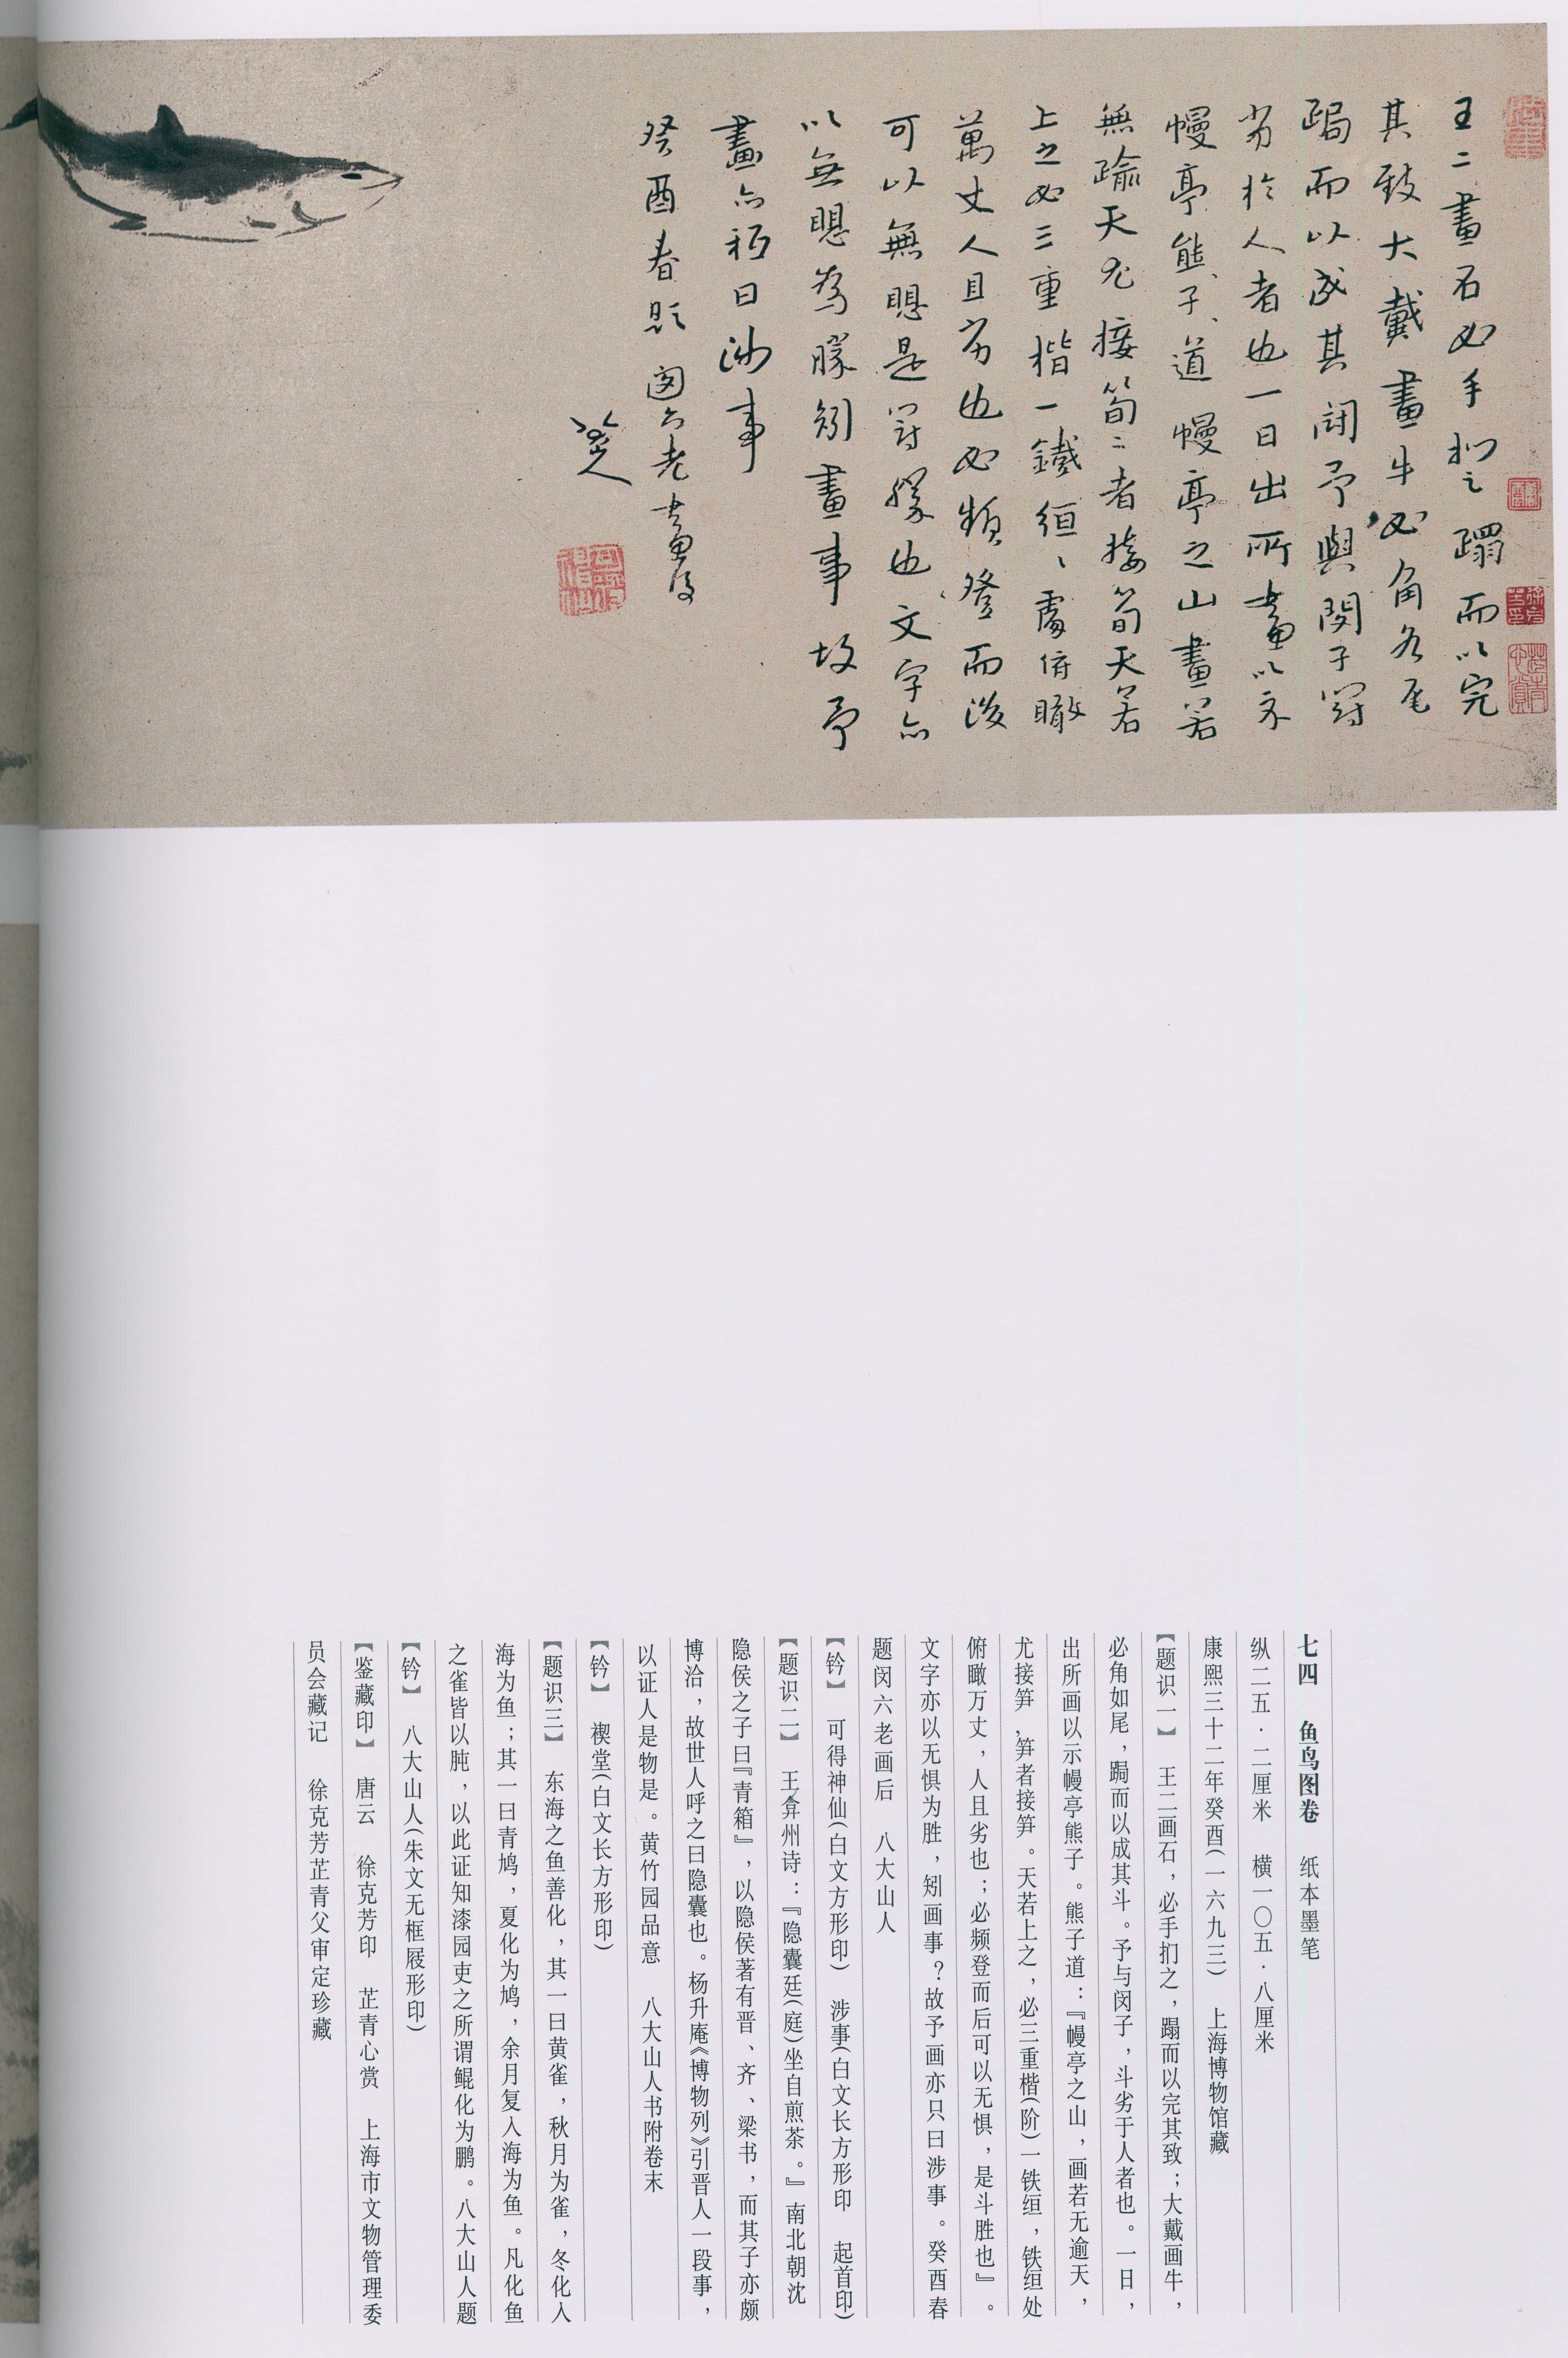 王二畫石必手扪之蹋而以完
其致大戴畫牛必角如尾
跼而以成其鬪予與閔子鬪
劣於人者也一日出所畫以示
幔亭熊子道幔亭之山畫若
無踰天尤接筍二者接筍天若
上之必三重楷一鐵絙、處俯瞰
萬丈人且劣也必頻登而後
可以無思是鬪勝也文字亦
以無思為勝矧畫事故予
畫亦秪曰涉事
癸酉春題閔六老畫後
八大山人
可得神仙
七四　鱼鸟图卷　纸本墨笔
纵二五·二厘米　横一〇五·八厘米
康熙三十二年癸酉(一六九三)　上海博物馆藏
【题识一】　王二画石，必手扪之，蹋而以完其致；大戴画牛，
必角如尾，跼而以成其斗。予与闵子，斗劣于人者也。一日，
出所画以示幔亭熊子。熊子道：『幔亭之山，画若无逾天，
尤接笋，笋者接笋。天若上之，必三重楷(阶)一铁组，铁组处
俯瞰万丈，人且劣也；必频登而后可以无惧，是斗胜也』。
文字亦以无惧为胜，矧画事？故予画亦只曰涉事。癸酉春
题闵六老画后　八大山人
【钤】　可得神仙(白文方形印)　涉事(白文长方形印　起首印)
【题识二】　王弇州诗：『隐囊廷(庭)坐自煎茶。』南北朝沈
隐侯之子曰『青箱』，以隐侯著有晋、齐、梁书，而其子亦颇
博洽，故世人呼之曰隐囊也。杨升庵《博物列》引晋人一段事，
以证人是物是。黄竹园品意　八大山人书附卷末
【钤】　禊堂(白文长方形印)
【题识三】　东海之鱼善化，其一曰黄雀，秋月为雀，冬化入
海为鱼；其一曰青鸠，夏化为鸠，余月复入海为鱼。凡化鱼
之雀皆以肫，以此证知漆园吏之所谓鲲化为鹏。八大山人题
【钤】　八大山人(朱文无框屐形印)
【鉴藏印】　唐云　徐克芳印　芷青心赏　上海市文物管理委
员会藏记　徐克芳芷青父审定珍藏